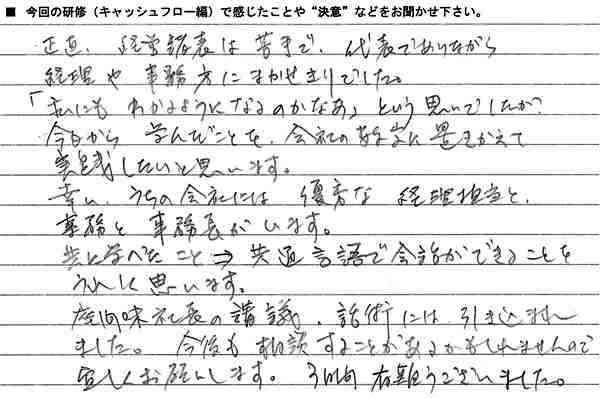 ■ 今回の研修（キャッシュフロー編）で感じたことや“決意”などをお聞かせ下さい。
正直、経営諸表は苦手で、代表でありながら
経理や事務方にまかせきりでした。
「私にもわかるようになるのかなあ」という思いでしたが、
今日から学んだことを、会社の数字に置きかえて
実践したいと思います。
幸い、うちの会社には優秀な経理担当と、
事務と事務長がいます。
共に学べたこと⇒共通言語で会話ができることを
うれしく思います。
社長の講義、話術には引き込まれ
ました。今後も相談することがあるかもしれませんので
宜しくお願いします。3日間有難うございました。